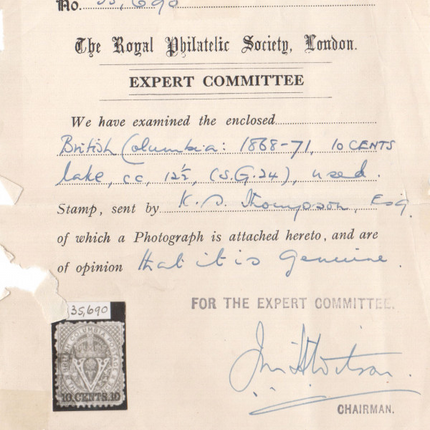 No. 35,690
The Royal Philatelic Society, London.
EXPERT COMMITTEE
We have examined the enclosed
British Columbia: 1868-71, 10 CENTS
lake, cc, 12½, (S.G. 24), used.
Stamp, sent by K. S. Thompson, Esq
of which a Photograph is attached hereto, and are
of opinion that it is genuine.
FOR THE EXPERT COMMITTEE.
35,690
10.CENTS.10
CHAIRMAN.